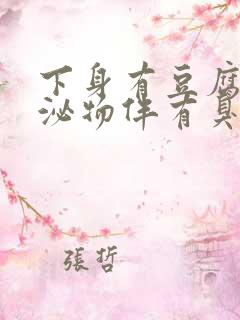 下身有豆腐
泌物伴有臭
張哲